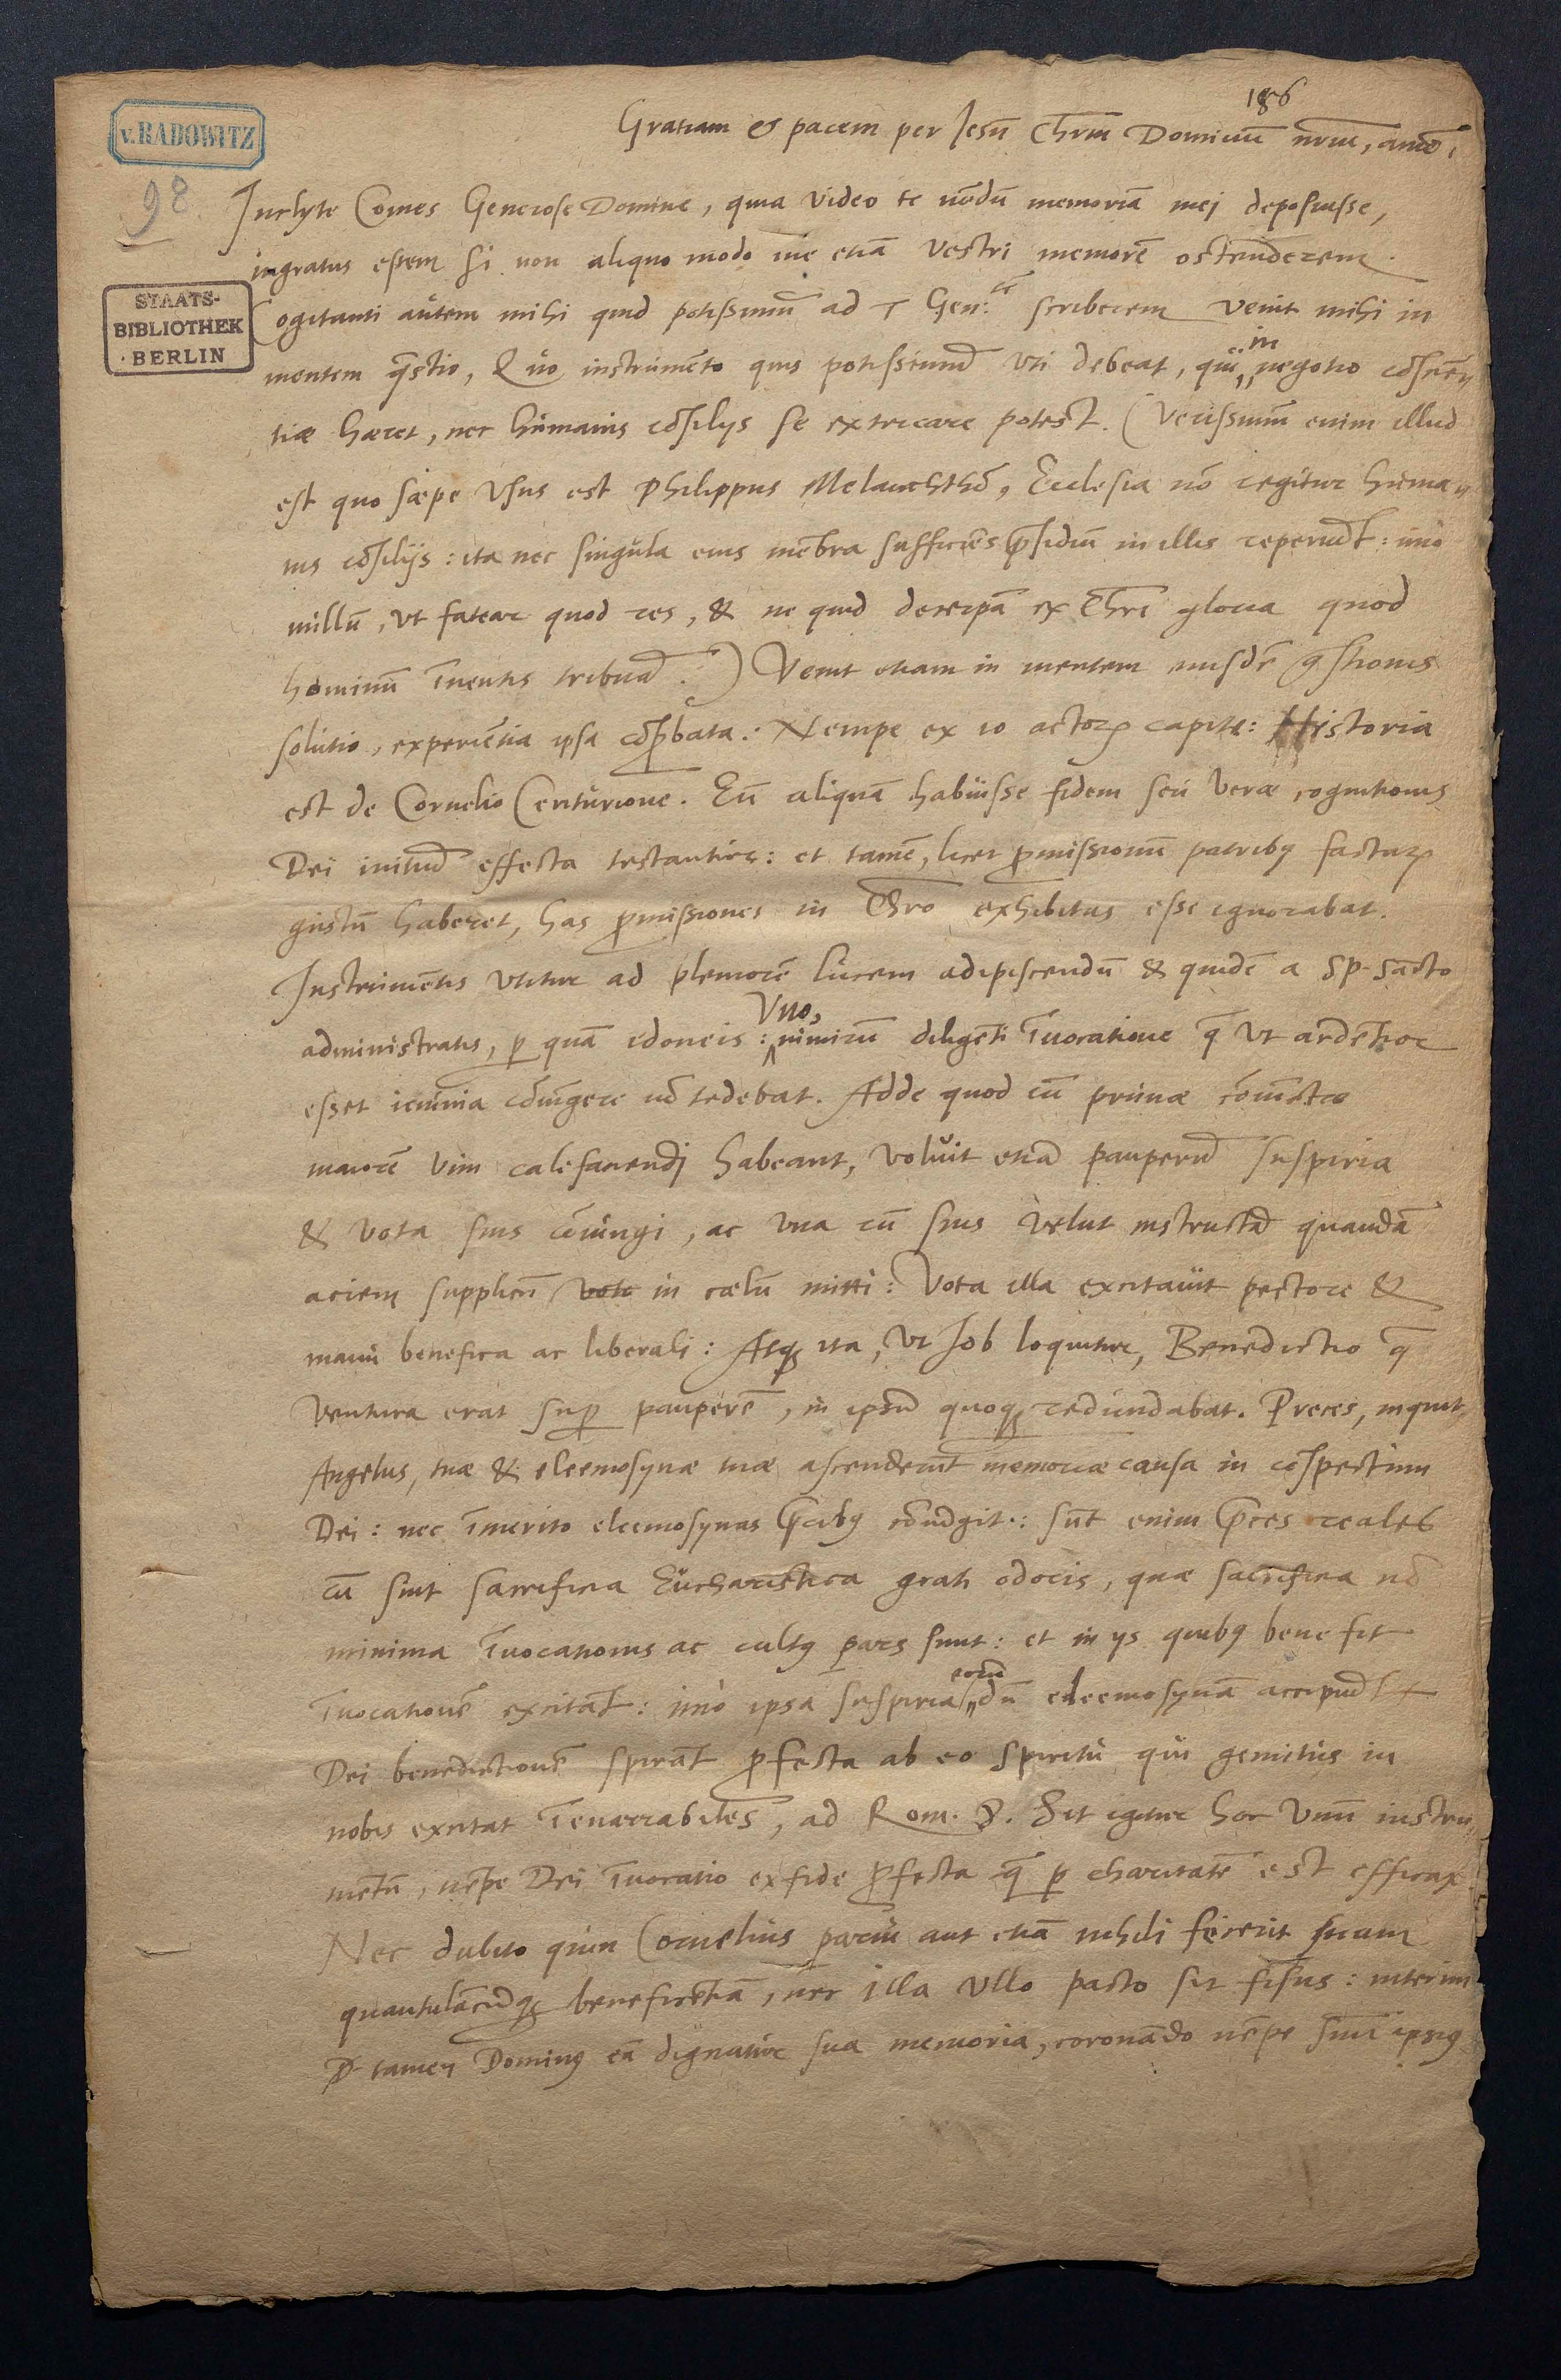 186
v. RADOWITZ
98.
STAATS-
BIBLIOTHEK
· BERLIN
Gratiam et pacem per Jesū Chrm̄ Dominū nr̄m, amē.
Inclyte Comes Generose Domine, quia video te nōdū memoriā mej deposuisse,
ingratus essem si non aliquo modo me etiā vestri memorē ostenderem.
Cogitanti autem mihi quid potissimū ad T Gen: tē scriberem venit mihi in
mentem q̄stio, Quo instrumēto quis potissimū vti debeat, qui in negotio cōsciēn
tiæ hæret, nec humanis cōsilijs se extricare potest. (Verissimū enim illud
est quo sæpe vsus est Philippus Melanchthō, Ecclesia nō regitur huma
nis cōsilijs: ita nec singula eius mēbra sufficiēs p̄sidiū in illis reperiūt: imò
nullū, vt fatear quod res, & ne quid decerpā ex Chri gloria quod
hominū īuentis tribuā.) Venit etiam in mentem eiusdē q̄stionis
solutio, experiētia ipsa cōp̄bata. Nempe ex 10 actorꝝ capite: Historia
est de Cornelio Centurione. Eū aliquā habuisse fidem seu veræ cognitionis
Dei initiū effecta testantur: et tamē, licet p̄missionū patribꝰ factarꝝ
gustū haberet, has p̄missiones in Chro exhibitas esse ignorabat.
Instrumētis vtitur ad pleniorē lucem adipiscendū & quidē a Sp. Sācto
administratis, p̱ quā idoneis: Vno, nimirū diligēti īuocatione q̄ vt ardētior
esset ieiunia cōiūgere nō tedebat. Adde quod cū prunæ cōiūctæ
maiorē vim calefaciendj habeant, voluit etiā pauperū suspiria
& vota suis cōiungi, ac vna cū suis velut instructā quandā
aciem supplicū vote in cælū mitti: Vota illa excitauit pectore &
manu benefica ac liberali: Atqꝫ ita, vt Job loquitur, Benedictio q̄
ventura erat sup̱ pauperē, in ipsū quoqꝫ redundabat. Preces, inquit
Angelus, tuæ & eleemosynæ tuæ ascenderūt memoriæ causa in cōspectum
Dei: nec īmerito eleemosynas p̄cibꝰ cōiūgit: sūt enim p̄ces reales
cū sint sacrificia Eucharistica grati odoris, quæ sacrificia nō
minima īuocationis ac cultꝰ pars sunt: et in ijs quibꝰ bene fit
īuocationē excitāt: imò ipsa suspiria eorū dū eleemosynā accipiūt
Dei benedictionē spirāt p̄fecta ab eo Spiritu qui gemitus in
nobis excitat īenarrabiles, ad Rom. 8. Sit igitur hoc vnū instru
mētū, nēpe Dei īuocatio ex fide p̄fecta q̄ p̱ charitatē est efficax
Nec dubito quin Cornelius parui aut etiā nihili fecerit suam
quantulācūqꝫ beneficētiā, nec illa vllo pacto sit fisus: interim
D. tamen Dominꝰ eā dignatur sua memoria, coronādo nēpe suū ipsiꝰ